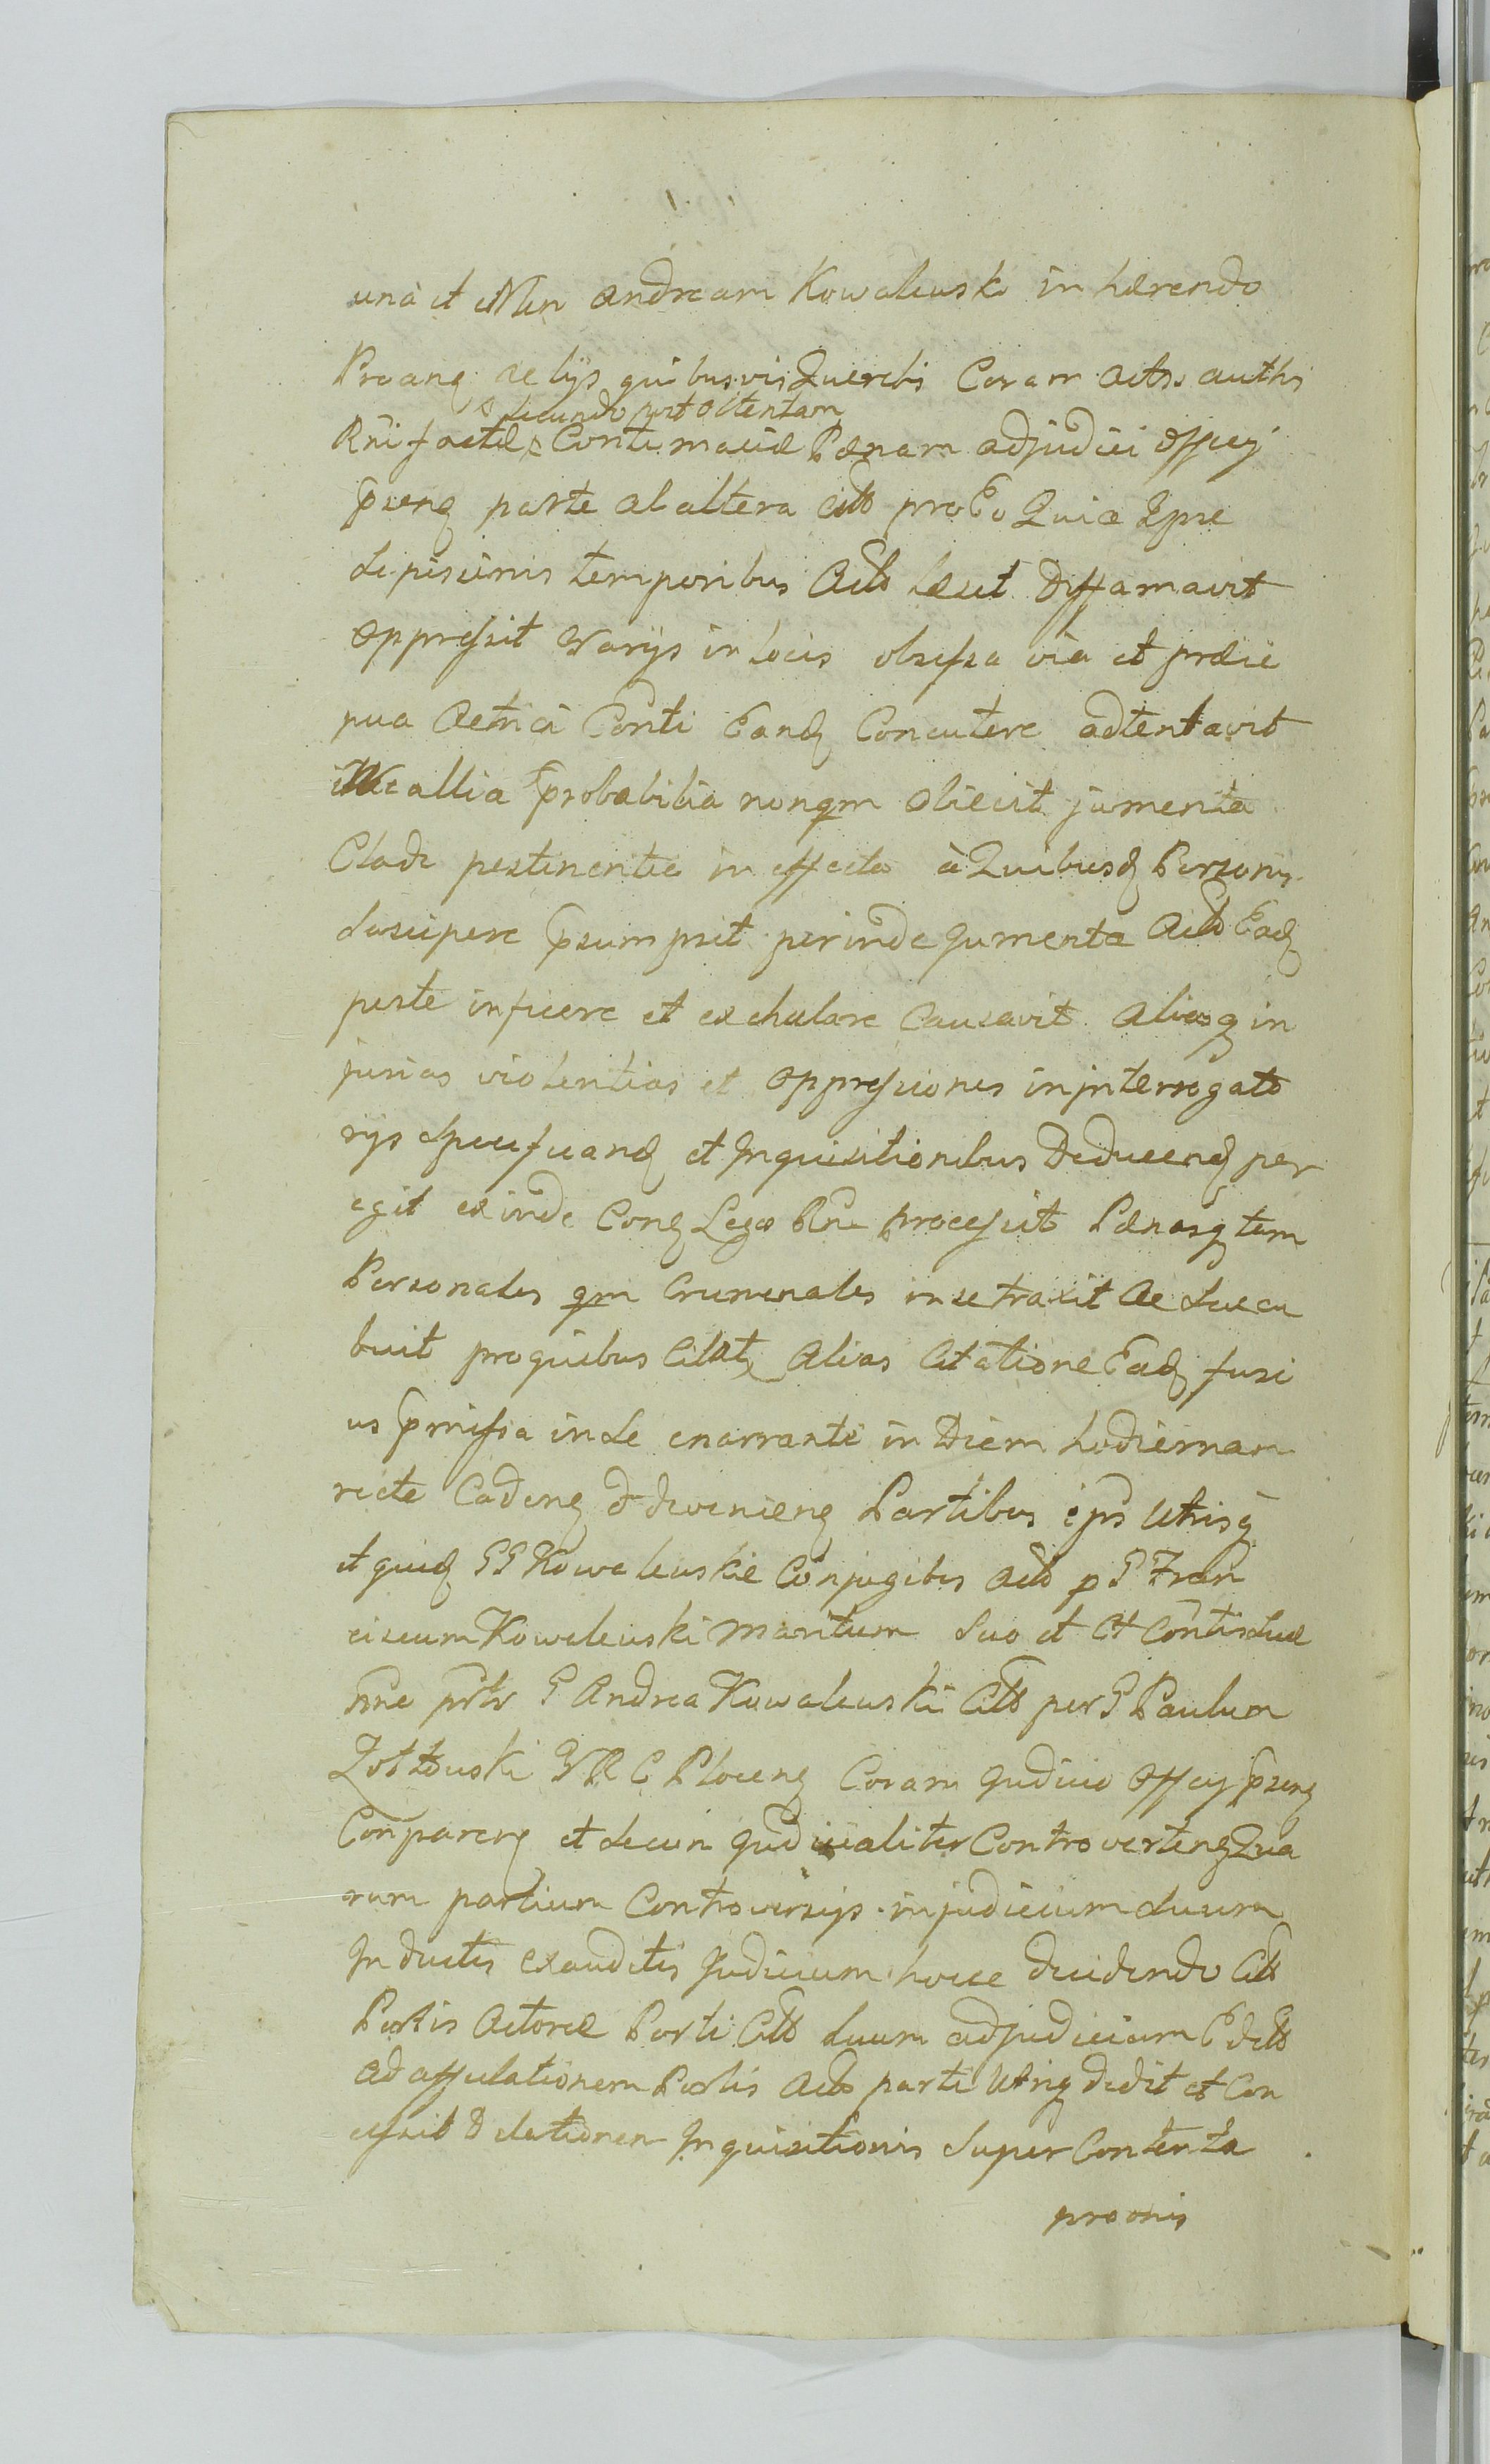 una et Mlen Andream Kowalewski in hærendo
Preang ac lijs quibusvis Querelis Coram Actis auths
secundo post obtentam
Rni factæ Contumaciæ Pænam adjudici Officij
pseng parte ab altera citt pro Eo Quia Ipse
sepissimis temporibus Acto læsit Diffamavit
oppressit Varijs in locis obsessa via et præci
pua Actrici Parti Eandq Concutere adtentavit
allia probabilia nonqm obiecit jumenta
Clade pestinentia in effecta à Quibusdq Personis
suscipere psumpsit perinde Jumenta Acto Eadq
peste inficere et exchalare Causavit Aliasq in
jurias violentias et oppressiones in jnterrogato
rijs specificandq et Inquisitionibus Deducendq per
egit exinde Cong Leges Rni processit Pænasq tam
Personales qm Criminales in se traxit Ac succu
buit pro quibus Citat Alias Citatione Eadq fusi
us pmissa in se enarranti in Diem hodiernam
recte Cadeng & devenieng Partibus ips Utrisq
et quidq GG Kowalewskie Conjugibus Acto p G Fran
ciscum Kowalewski Maritum suo et Contis suæ
nne G Andrea Kowalewski Citt per G Paulum
Zottowski VRC Ploceng Coram Judicio Officij pseng
Conpareng et secum Judicialiter Controverteng Qua
rum partium Controversijs in judicium suum
Inductis exauditis Judicium hocce decidendo Citt
Partis Actoreæ Parti Citt suum adjudicium
ad affectationem Partis Acto parti Utriq dedit et Con
cessit Dilationem Inquisitionis super Contenta
pro onis